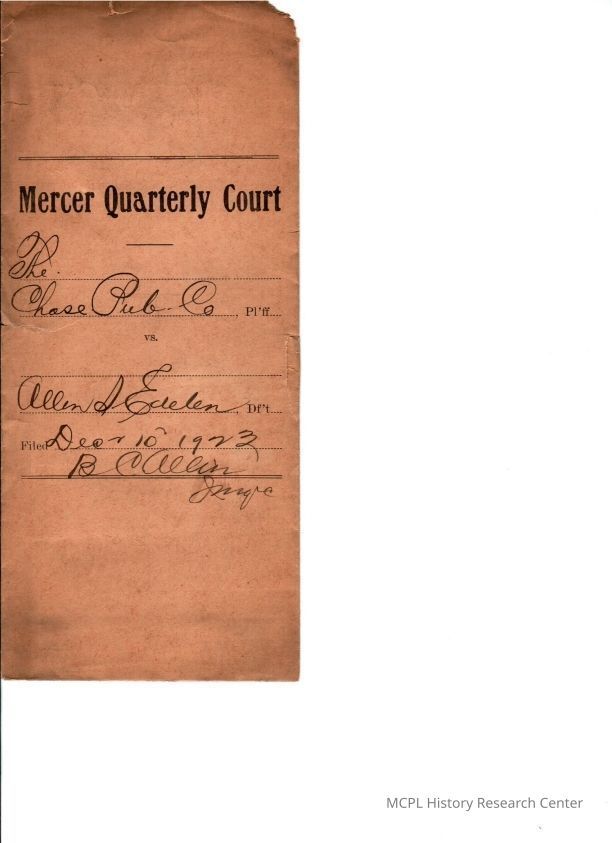 Mercer Quarterly Court
The
Chase Pub. Co Pl'ff
vs.
Allen S Edelen, Df't
Filed Decr 15 1923
B C Allin
MCPL History Research Center